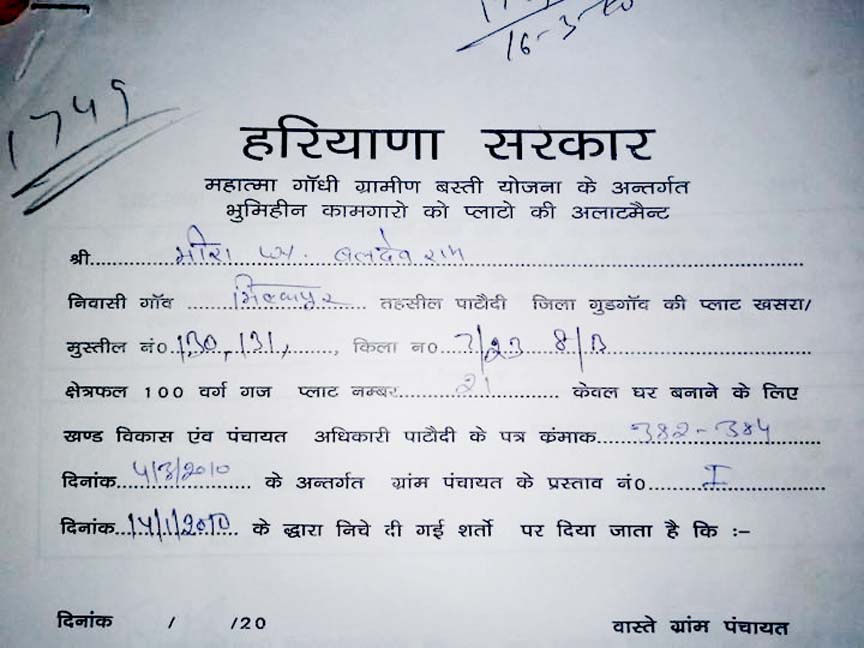 16-3-20
1749
हरियाणा सरकार
महात्मा गॉधी ग्रामीण बस्ती योजना के अन्तर्गत
भुमिहीन कामगारो को प्लाटो की अलाटमैन्ट
श्री.....मीरा.....बलदेव राम.....
निवासी गॉव .................... तहसील पाटौदी जिला गुडगॉव की प्लाट खसरा/
मुस्तील नं० 130, 131, ......, किला न० 7/23 8/
क्षेत्रफल 100 वर्ग गज प्लाट नम्बर.......21....... केवल घर बनाने के लिए
खण्ड विकास एंव पंचायत अधिकारी पाटौदी के पत्र कंमाक.....382-384
दिनांक..4/3/2010.. के अन्तर्गत ग्रांम पंचायत के प्रस्ताव नं०.......I.......
दिनांक..14/1/2010.. के द्धारा निचे दी गई शर्तो पर दिया जाता है कि :–
दिनांक / /20 वास्ते ग्रांम पंचायत